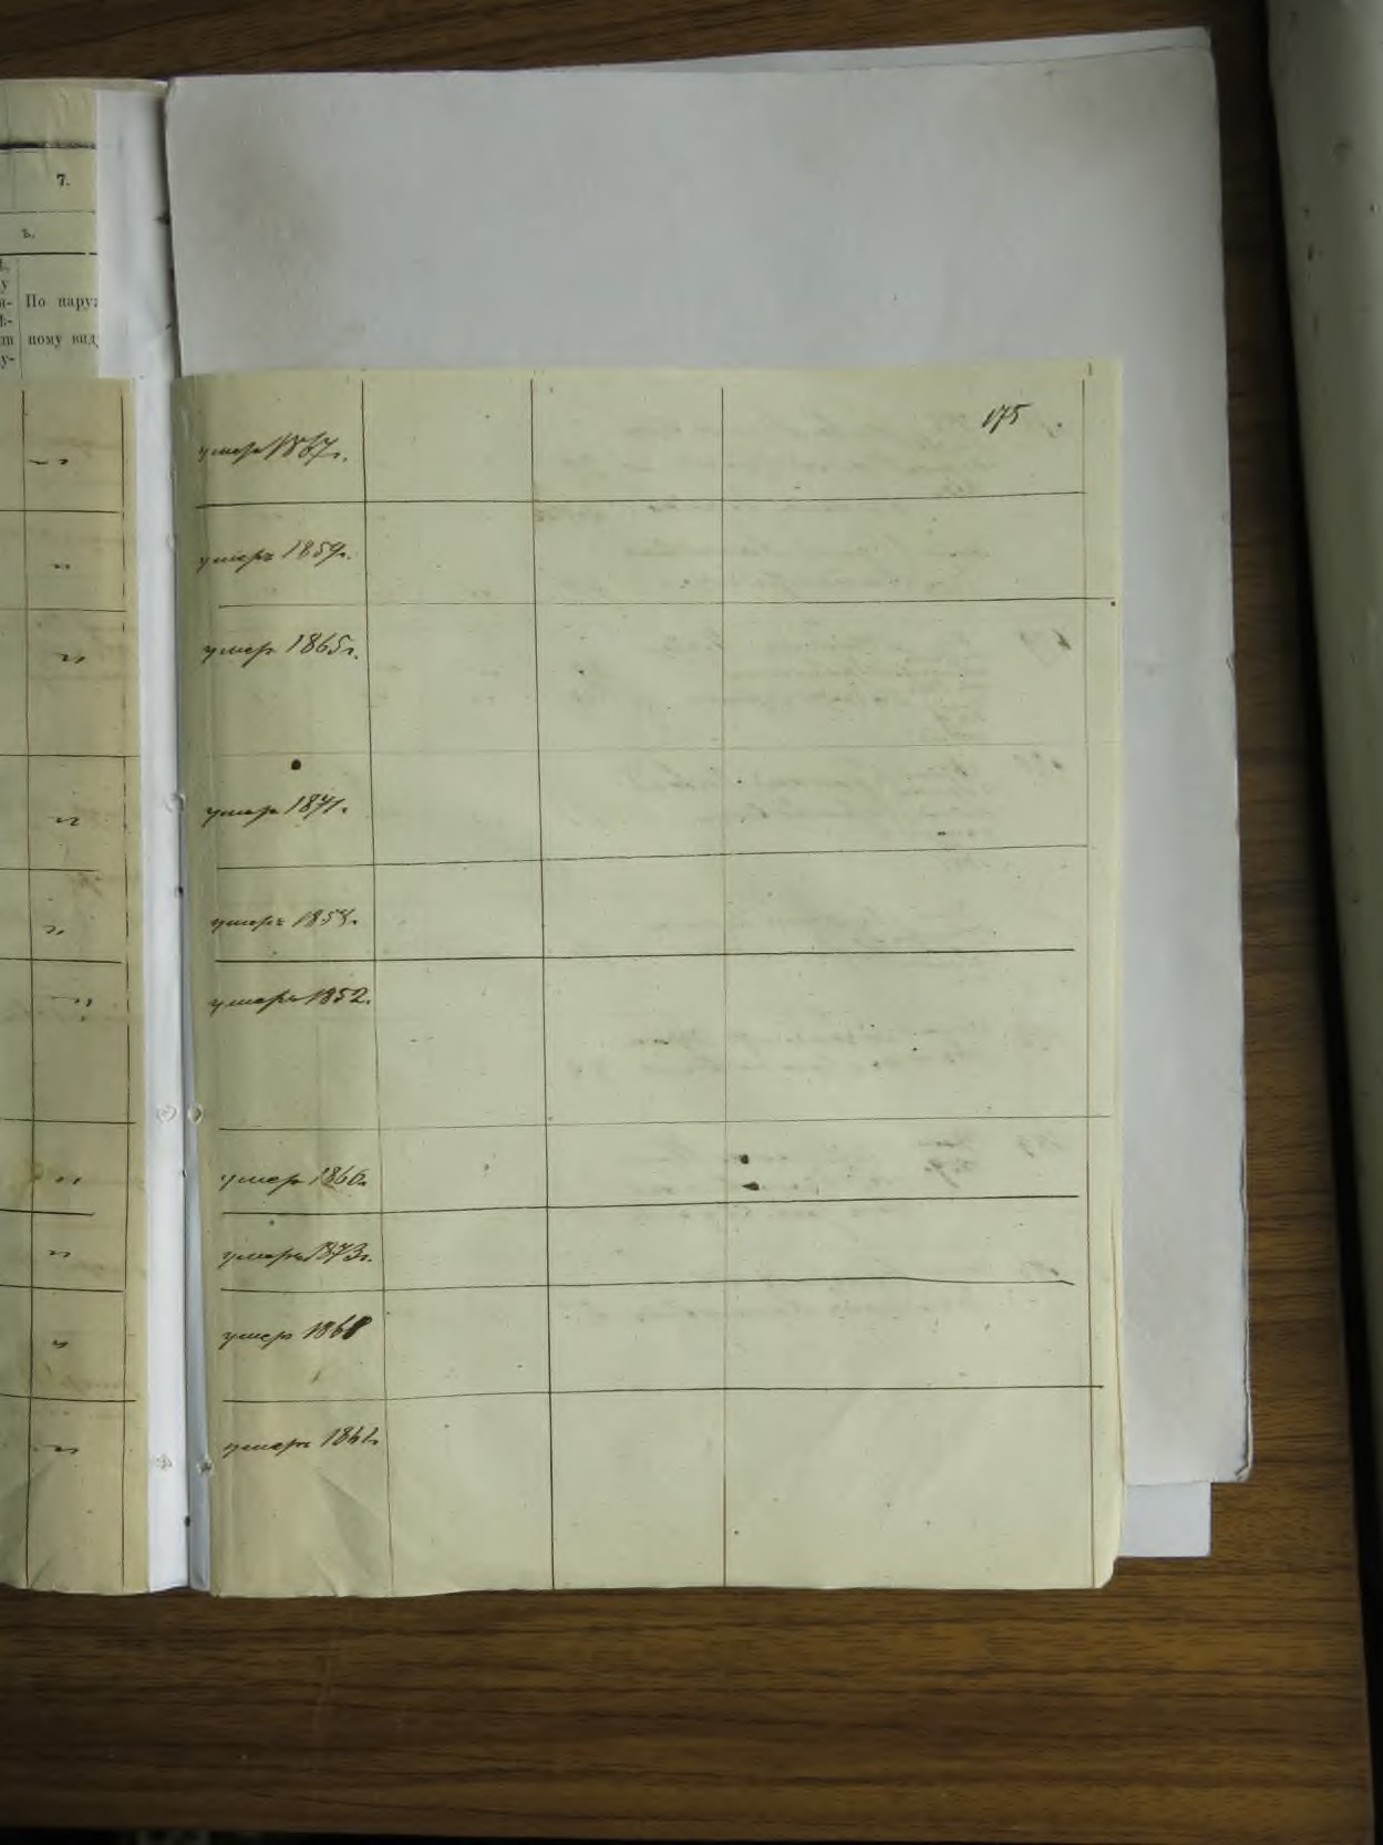 7.
в.
По наруж
ному вид
175
умеръ 1867г.
умеръ 1859г.
умер 1865г.
умер 1871г.
умеръ
умеръ 1852.
умер 1866г.
умеръ 1873г.
умер 1868
умеръ